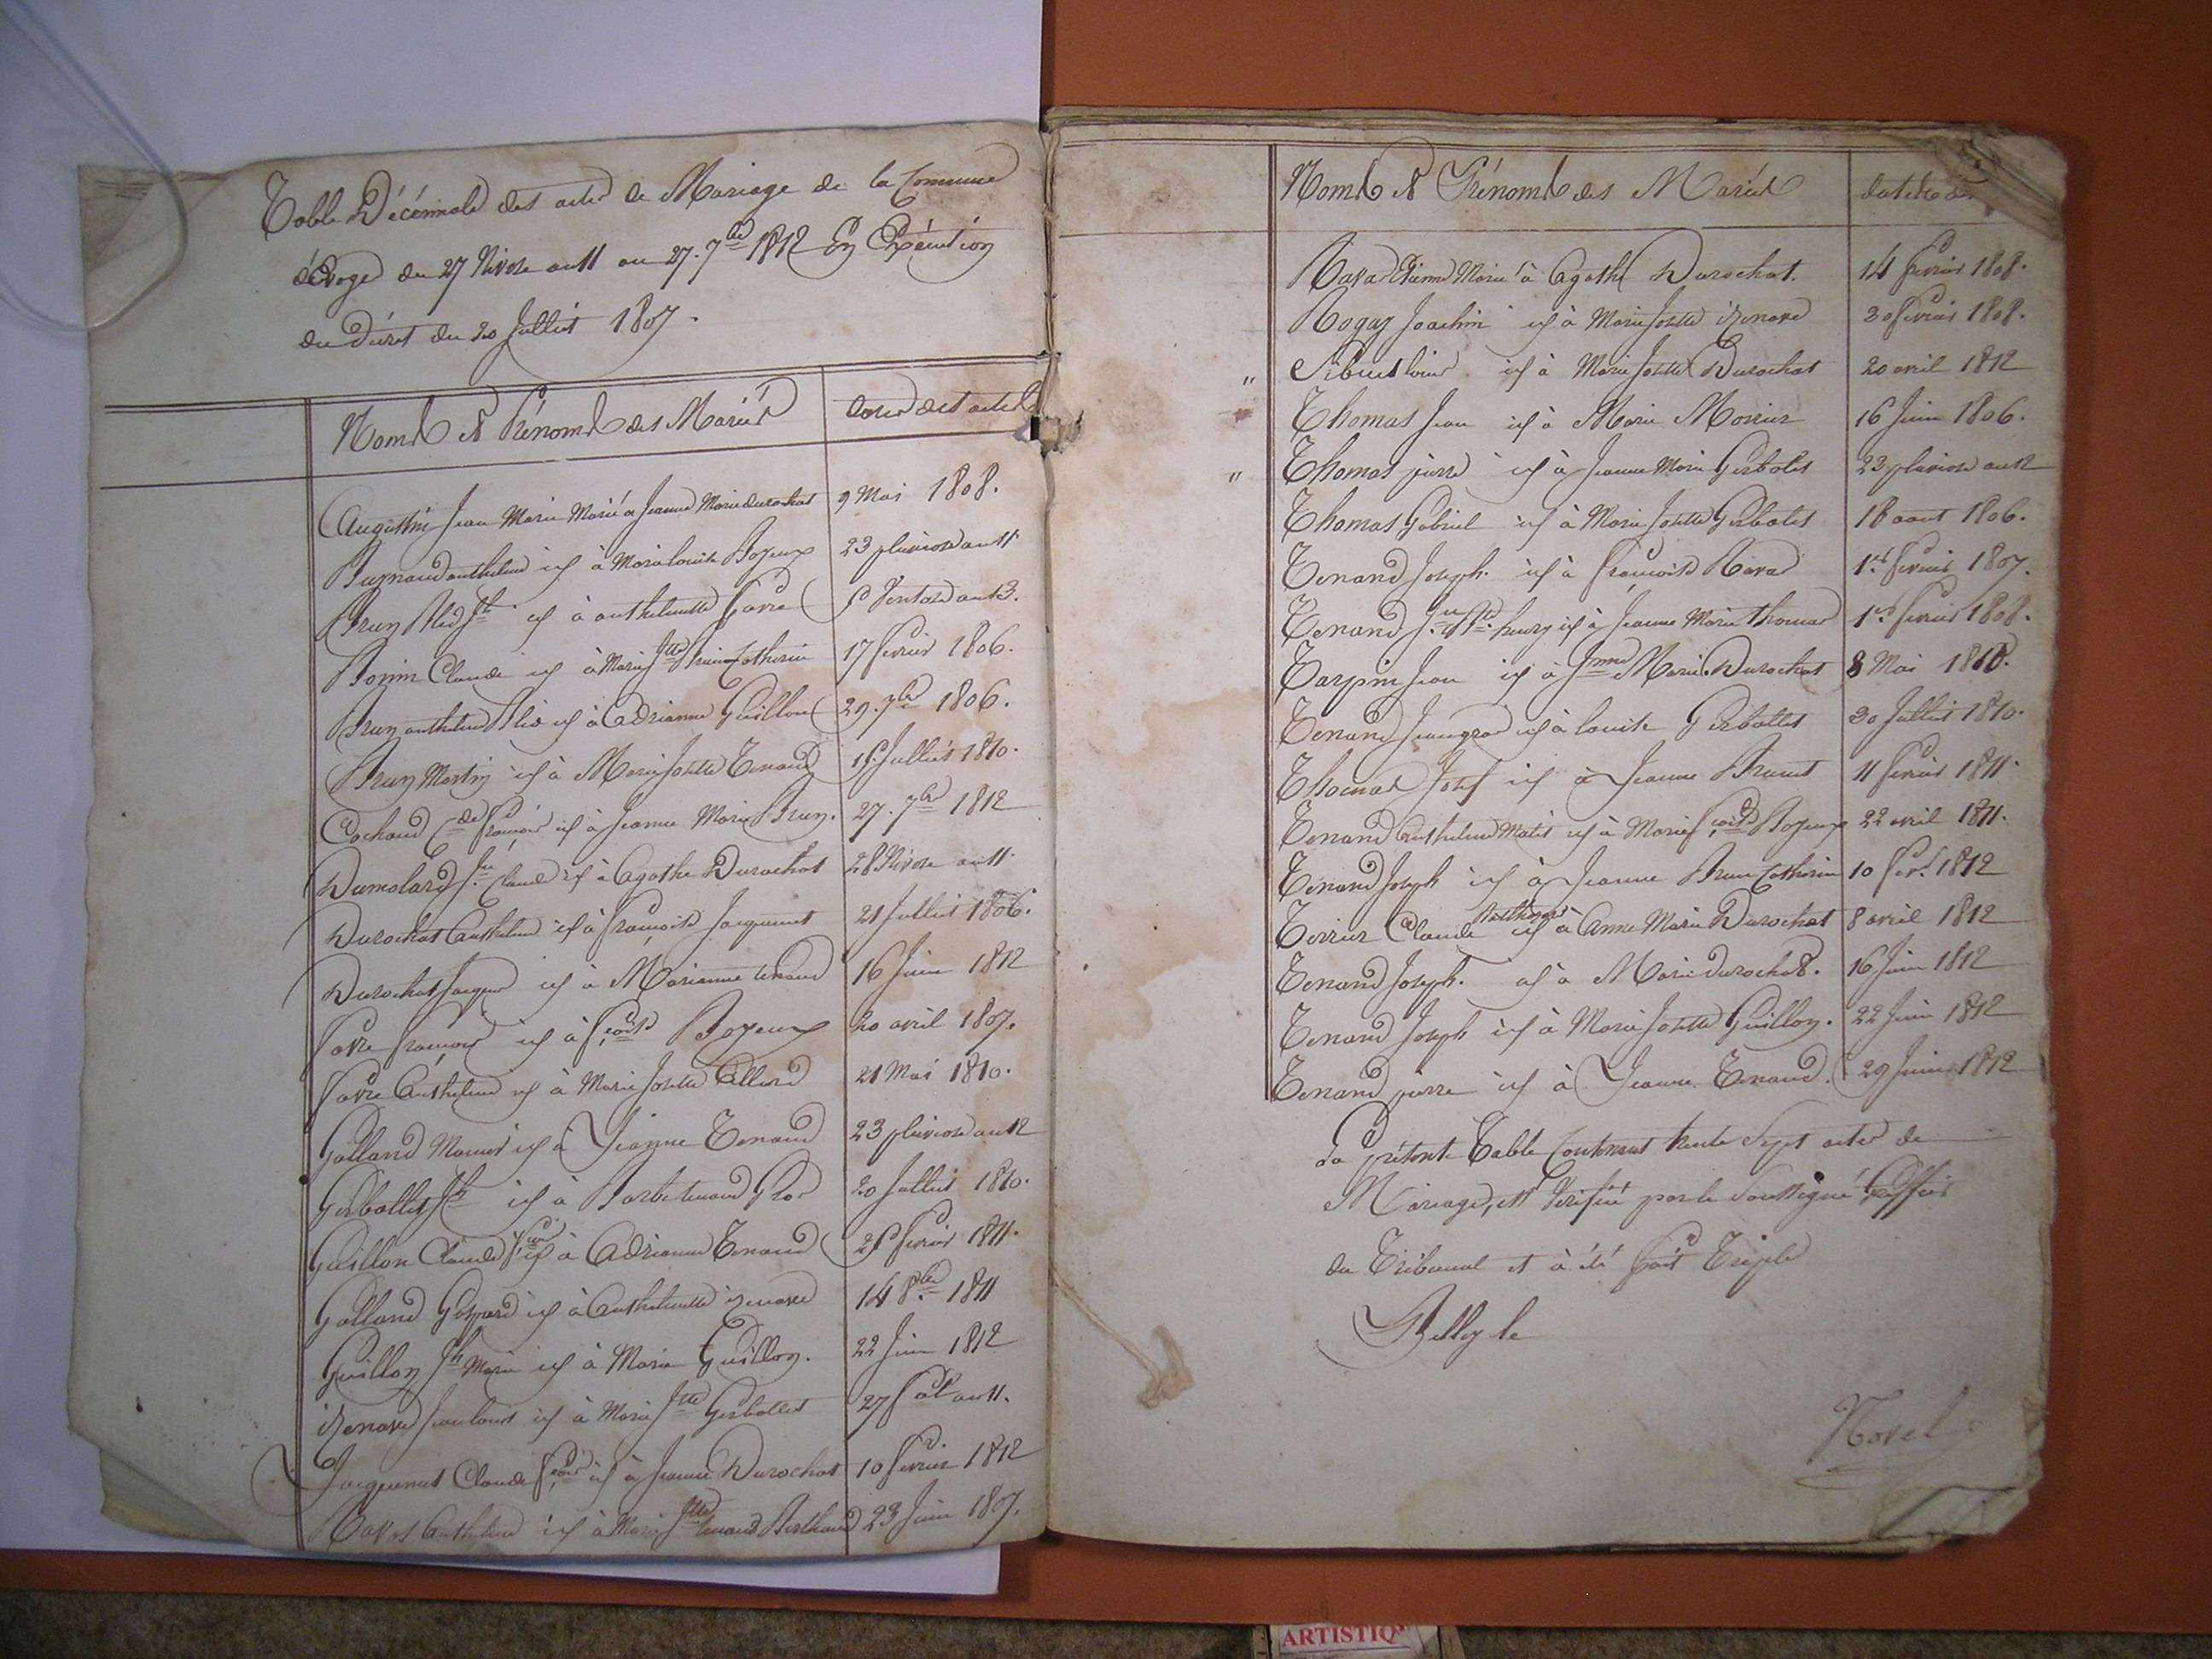 Table Décénnale des actes de Mariage de la Commune
d'Evoges du 27 Nivose an 11 au 27. 7bre 1812 En Exécution
du Décret du 20 Juillet 1807.
Noms et Prénoms des Mariés dates des actes
Augustin Jean Marie Marié à Jeanne Marie durochat 9 Mai 1808.
Buynand anthelme id à Marie louise Boyeux 23 pluviose an 11
Brun Jh id à anthelmette favre Ventose an 13.
Bonin Claude id à Marie Jtte Brun Catherin 17 fevrier 1806.
Brun anthelme id à Adrianne Guillon 29. 7bre 1806.
Brun Martin id à Marie Josette Tenand Juillet 1810.
Cochaud Cde françois id à Jeanne Marie Brun. 27. 7bre 1812
Dumolard Claude id à Agathe Durochat 28 Nivose an 11
Durochat Anthelme id à françoise Jacquemet 21 Juillet 1806.
Durochat Jacques id à Marianne tenand 16 Juin 1812
favre françois id à fçoise Boyeux 20 avril 1807.
favre Anthelme id à Marie Josette Allard 21 Mai 1810.
Galland id à Jeanne Tenand 23 pluviose an 12
Gerbollet Jh id à Barbe tenand 20 Juillet 1810.
Guillon Claude fçois id à Adrianne Tenand fevrier 1811.
Galland Gaspard id à Anthelmette izenave 14 8bre 1811
Guillon Jh Marie id à Marie Guillon. 22 Juin 1812
izenave Jean louis id à Marie Jtte Gerbollet 27 an 11.
Jacquemet Claude fçois id à Jeanne Durochat 10 fevrier 1812
Anthelme id à Marie Jtte tenand Berthand 23 Juin 1807.
Noms et Prénoms des Mariés dates de
Rava Etienne Marié à Agathe Durochat. 14 fevrier 1808.
Rogaz Joachin id à Marie Josette izenave fevrier 1808.
" louis id à Marie Josette Durochat 20 avril 1812
Thomas Jean id à Marie 16 Juin 1806.
" Thomas pierre id à Jeanne Marie Gerbolet 23 pluviose an 12
Thomas Gabriel id à Marie Josette Gerbolet 18 aout 1806.
Tenand Joseph. id à françoise Rava 1er fevrier 1807.
Tenand Jn Bte. henry id à Jeanne Marie thomas 1er fevrier 1808.
Tarpin Jean id à Jnne Marie Durochat 8 Mai 1810.
Tenand id à louise Gerbollet 30 Juillet 1810.
Thomas Josef id à Jeanne Brunet 11 fevrier 1811.
Tenand Anthelme id à Marie fçoise Boyeux 22 avril 1811.
Tenand Joseph id à Jeanne Brun Catherin 10 fevr. 1812
Terrier Claude Anthelme id à Anne Marie Durochat 8 avril 1812
Tenand Joseph. id à Marie durochat. 16 Juin 1812
Tenand Joseph id à Marie Josette Guillon. 22 Juin 1812
Tenand pierre id à Jeanne Tenand. 29 Juin 1812
La présente Table Contenant trente Sept actes de
Mariage, est Verifiée par le Soussigné Greffier
du Tribunal et à été fait Triple
Belley le
Novel
ARTISTIQ